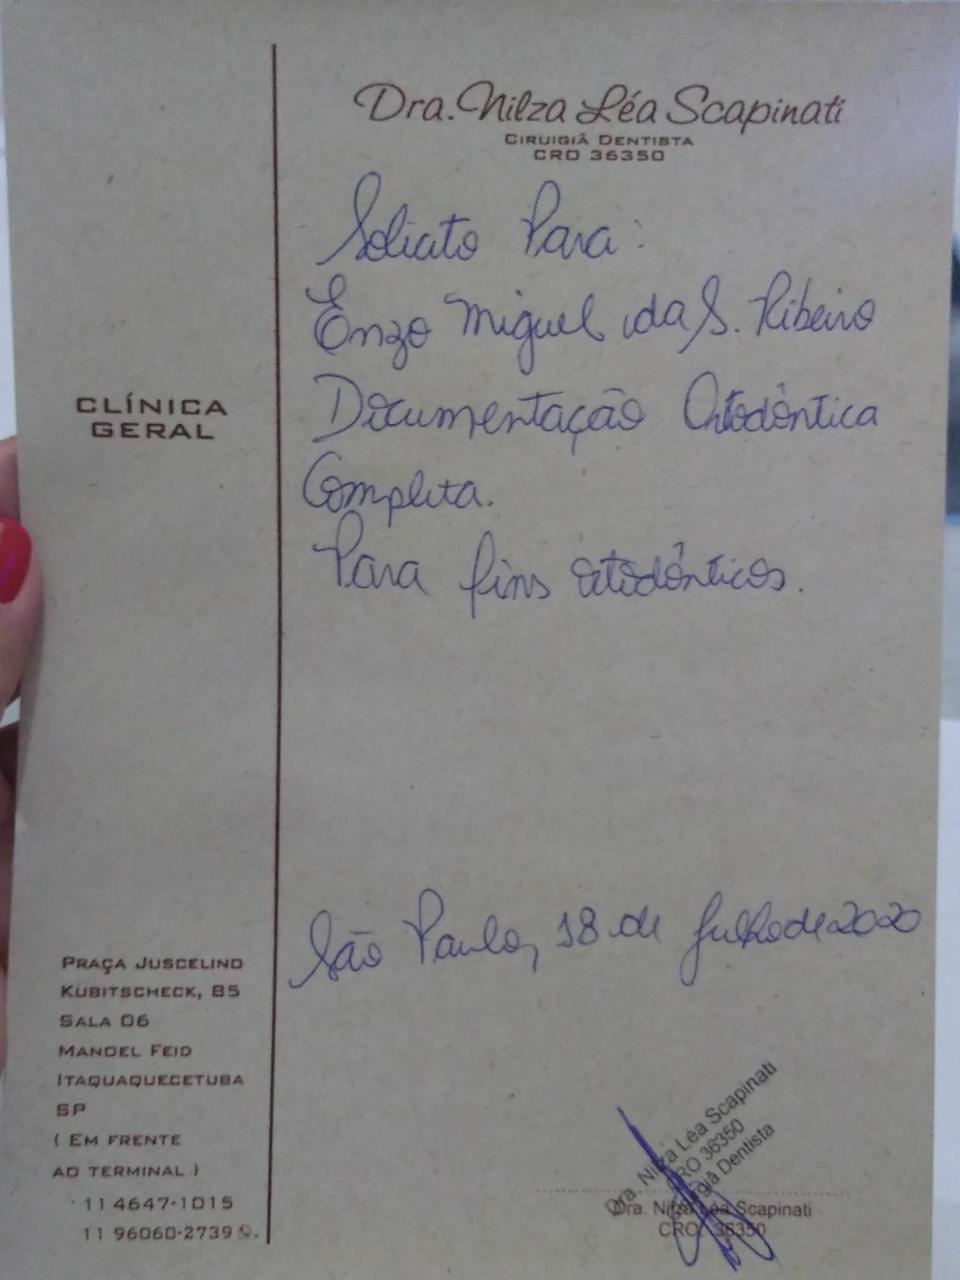 Dra. Nilza Léa Scapinati
CIRUIGIÃ DENTISTA
CRO 36350
Solicito Para:
Enzo Miguel da S. Ribeiro
Documentação Ortodôntica
Completa.
Para fins ortodônticos.
São Paulo, 18 de Julho de 2020
CLÍNICA
GERAL
PRAÇA JUSCELINO
KUBITSCHECK, 85
SALA 06
MANOEL FEIO
ITAQUAQUECETUBA
SP
( EM FRENTE
AO TERMINAL )
11 4647-1015
11 96060-2739
Dra. Nilza Léa Scapinati
CRO 36350
Cirurgiã Dentista
Dra. Nilza Léa Scapinati
CRO 36350